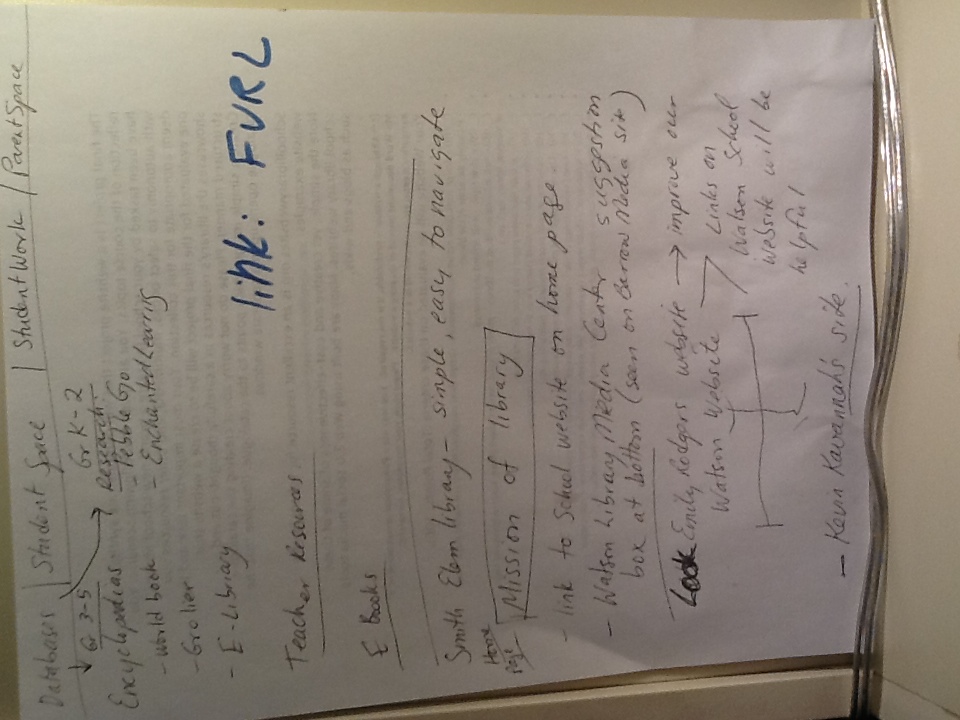 Databases | Student Space | Student Work | Parent Space
Gr 3-5
Gr K-2
Encyclopedias
Research:
- World book
- Pebble Go
- Grolier
- Enchanted Learning
- E-Library
link: FURL
Teacher Resources
E Books
Smith Elem library - simple, easy to navigate
Home page -
Mission of library
- link to School website on home page.
- Watson Library Media Center suggestion
box at bottom (seen on Barrow Media site)
Look Emily Rodgers website → improve our
Watson Website
Links on
Watson School
website will be
helpful
- Kevin Kavannah's site.